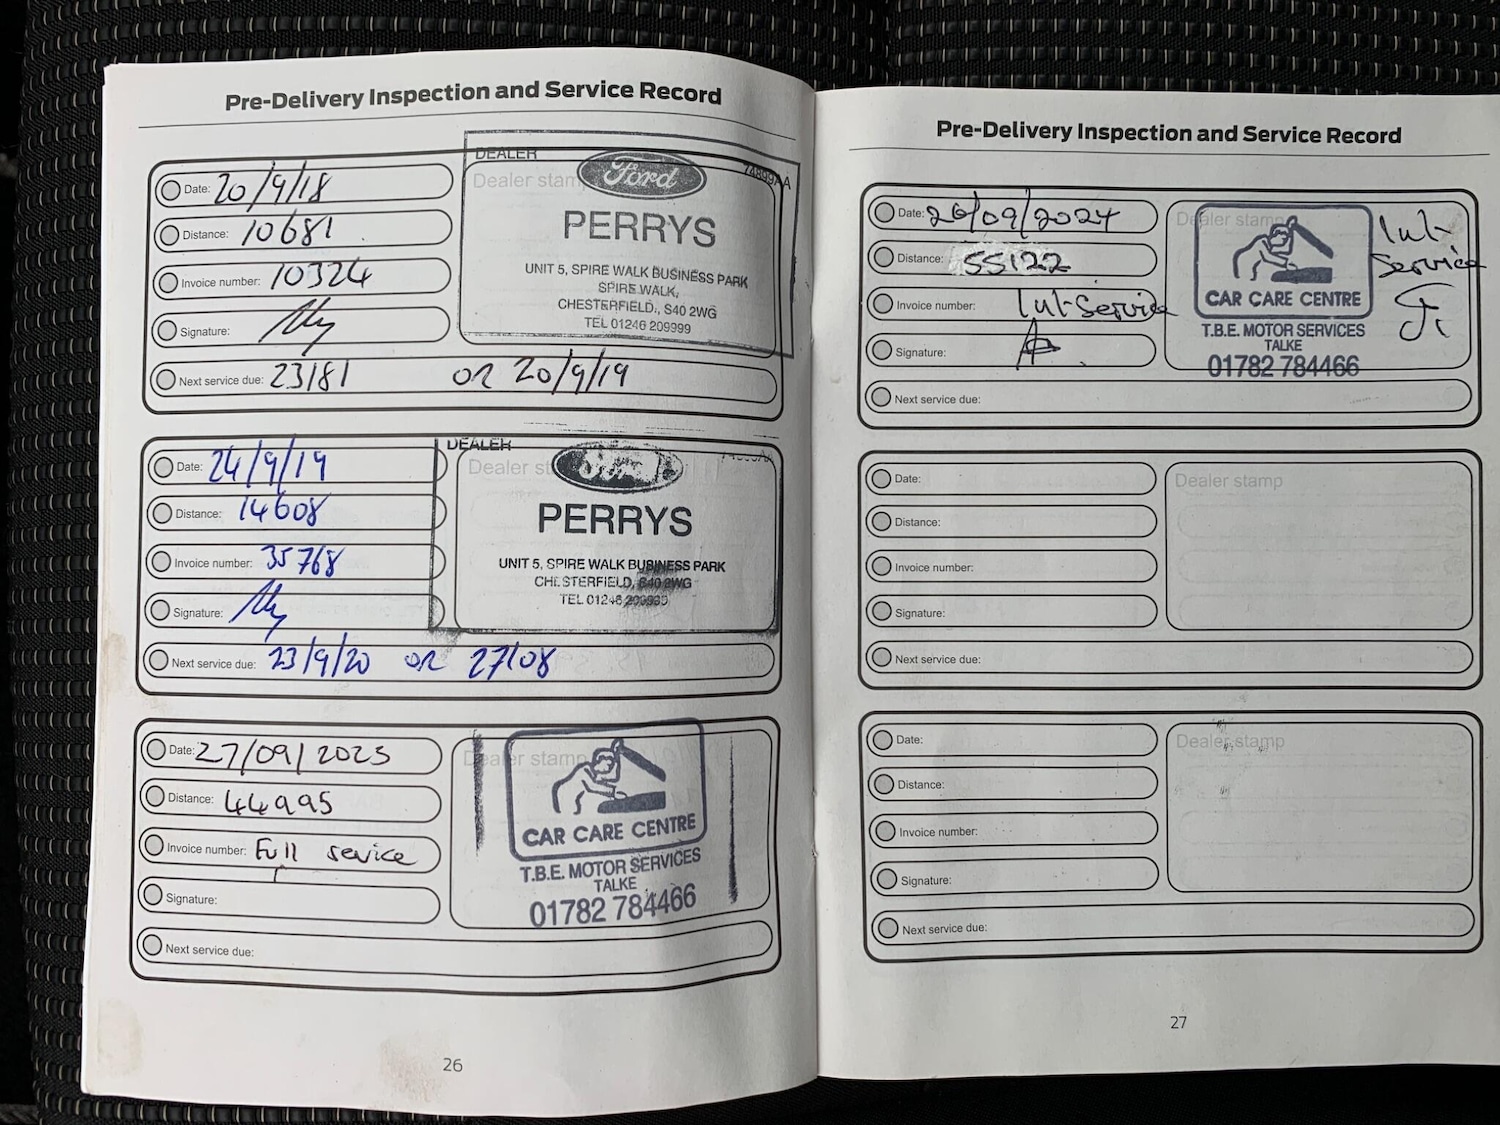 Pre-Delivery Inspection and Service Record
Date: 20/9/18
Distance: 10681
Invoice number: 10324
Signature:
Next service due: 23181 OR 20/9/19
DEALER 74899AA
Dealer stamp
Ford
PERRYS
UNIT 5, SPIRE WALK BUSINESS PARK
SPIRE WALK,
CHESTERFIELD., S40 2WG
TEL 01246 209999
Date: 24/9/19
Distance: 14608
Invoice number: 35768
Signature:
Next service due: 23/9/20 OR 27108
DEALER
Dealer st
PERRYS
UNIT 5, SPIRE WALK BUSINESS PARK
CHESTERFIELD, S40 2WG
TEL 01246
Date: 27/09/2023
Distance: 44995
Invoice number: Full service
Signature:
Next service due:
Dealer stamp
CAR CARE CENTRE
T.B.E. MOTOR SERVICES
TALKE
01782 784466
26
Pre-Delivery Inspection and Service Record
Date: 26/09/2024
Distance: 55122
Invoice number: Int-Service
Signature:
Next service due:
Dealer stamp
CAR CARE CENTRE
T.B.E. MOTOR SERVICES
TALKE
01782 784466
Int-
Service
Date:
Distance:
Invoice number:
Signature:
Next service due:
Dealer stamp
Date:
Distance:
Invoice number:
Signature:
Next service due:
Dealer stamp
27